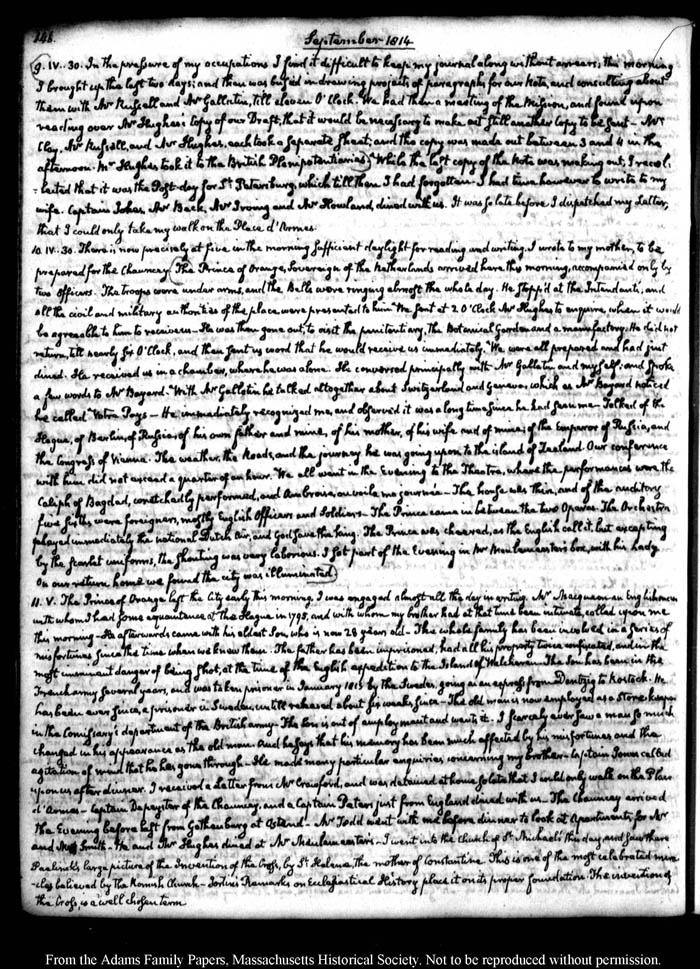 146.
September 1814
9. IV..30. In the pressure of my occupations I find it difficult to keep my journal along without arrears; this morning
I brought up the last two days; and then was busied in drawing projects of paragraphs for our Note, and consulting about
them with Mr Russell and Mr Gallatin, till eleven O'Clock. We had then a meeting of the Mission, and found upon
reading over Mr Hughes's Copy of our Draft, that it would be necessary to make out still another Copy to be sent — Mr
Clay, Mr Russell, and Mr Hughes, each took a separate Sheet; and the copy was made out between 3 and 4 in the
afternoon. Mr Hughes took it to the British Plenipotentiaries. While the last copy of the Note was making out, I recol-
-lected that it was the Post-day for St Petersburg, which till then I had forgotten. I had time however to write to my
wife. Captain Jones, Mr Bache, Mr Irving and Mr Howland, dined with us. It was so late before I dispatched my Letter,
that I could only take my walk on the Place d'Armes.
10. IV..30. There is now precisely at five in the morning sufficient daylight for reading and writing. I wrote to my mother, to be
prepared for the Chauncey. The Prince of Orange, Sovereign of the Netherlands arrived here this morning, accompanied only by
two Officers. The troops were under arms, and the Bells were ringing almost the whole day. He stopp'd at the Intendant's, and
all the civil and military authorities of the place were presented to him. We sent at 2 O'Clock Mr Hughes to enquire, when it would
be agreeable to him to receive us — He was then gone out, to visit the penitentiary, the Botanical Garden and a manufactory. He did not
return, till nearly six O'Clock, and then sent us word that he would receive us immediately. We were all prepared and had just
dined. He received us in a chamber, where he was alone. He conversed principally with Mr Gallatin and myself; and spoke
a few words to Mr Bayard. With Mr Gallatin he talked altogether about Switzerland and Geneva, which as Mr Bayard noticed
he called "Votre Pays — He immediately recognized me, and observed it was a long time since he had seen me — Talked of the
Hague, of Berlin, of Russia; of his own father and mine, of his mother, of his wife and of mine; of the Emperor of Russia, and
the Congress of Vienna. The weather, the Roads, and the journey he was going upon to the island of Zealand. Our conference
with him did not exceed a quarter of an hour. We all went in the Evening to the Theatre, where the performances were the
Caliph of Bagdad, wretchedly performed, and Ambroise, ou voila ma journée — The house was thin, and of the auditory
five sixths were foreigners, mostly English Officers and Soldiers — The Prince came in between the two Operas. The Orchestra
played immediately the national Dutch Air, and God save the king. The Prince was cheered, as the English call it, but excepting
by the scarlet uniforms, the shouting was very laborious. I sat part of the Evening in Mr Meulemeesters box, with his lady.
On our return home we found the city was illuminated.
11. V. The Prince of Orange left the City early this morning. I was engaged almost all the day in writing. Mr an Englishman
with whom I had some acquaintance at The Hague in 1795, and with whom my brother had at that time been intimate, called upon me
this morning — He afterwards came with his oldest Son, who is now 28 years old — The whole family has been involved in a series of
misfortunes since the time when we knew them. The father has been imprisoned, had all his property twice confiscated, and in the
most imminent danger of being Shot, at the time of the English expedition to the Island of Walcheren. The Son has been in the
French army several years, and was taken prisoner in January 1813 by the Swedes, going as an express from Dantzig to Rostock. He
has been ever since, a prisoner in Sweden, untill released about six weeks since — The old man is now employed as a Store-keeper
in the Comissary's department of the British army — The Son is out of employment and wants it. I scarcely ever saw a man so much
changed in his appearance as the old man. And he says that his memory has been much affected by his misfortunes and the
agitation of mind that he has gone through — He made many particular enquiries concerning my brother — Captain Jones called
upon us after dinner. I received a Letter from Mr Crawford, and was detained at home so late that I could only walk on the Place
d'Armes — Captain Depeyster of the Chauncey, and a Captain Peters just from England dined with us — The Chauncey arrived
the Evening before last from Gothenburg at Ostend — Mr Todd went with me before dinner to look at Apartments, for Mr
and Mrs Smith. He and Mr Hughes dined at Mr Meulemeesters — I went into the Church of St Michael's this day and saw there
Paelinck's large picture of the Invention of the Cross, by St Helena, the mother of Constantine. This is one of the most celebrated mira-
-cles believed by the Romish Church — Jortin's Remarks on Ecclesiastical History place it on its proper foundation. The invention of
the Cross, is a well chosen term
From the Adams Family Papers, Massachusetts Historical Society. Not to be reproduced without permission.